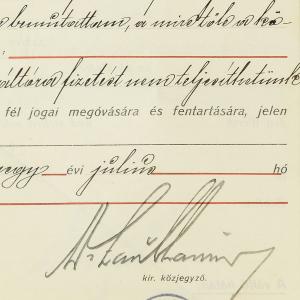 bemutattam, a mint óla a kö-
váltóra fizetést nem teljesíthetünk
fél jogai megóvására és fentartására, jelen
évi július hó
kir. közjegyző.